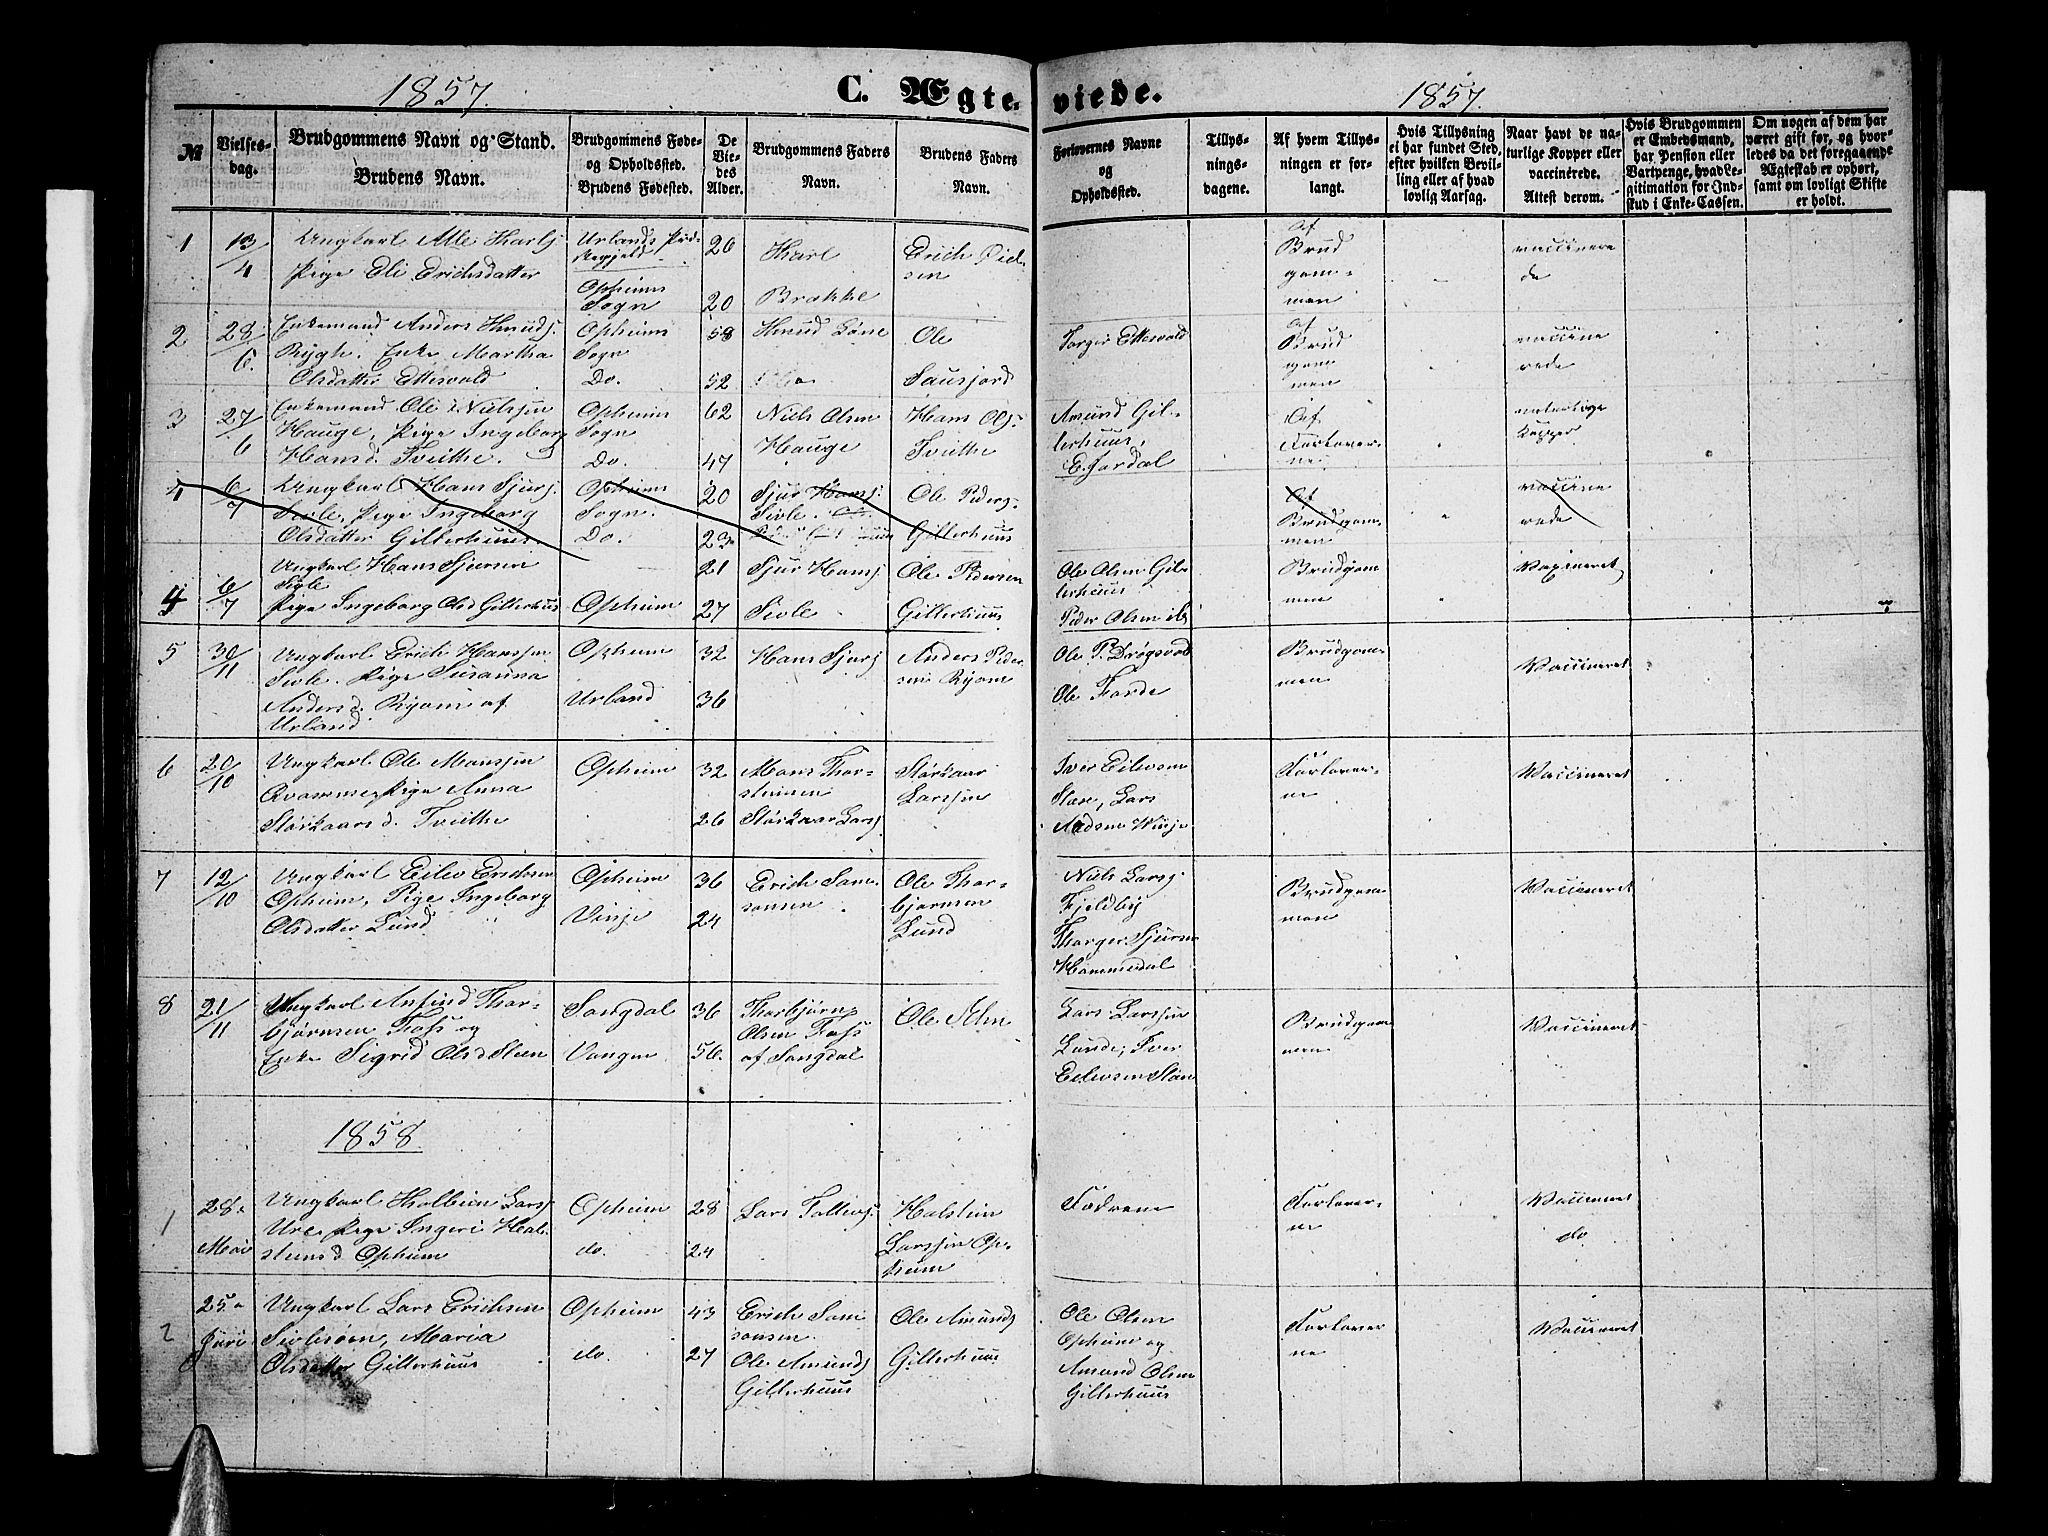 1857.
C. Ægte-
viede.
1857.
№
Vielses-
dag.
Brudgommens Navn og Stand.
Brudens Navn.
Brudgommens Føde-
og Opholdssted.
Brudens Fødested.
De
Vie-
des
Alder.
Brudgommens Faders
Navn.
Brudens Faders
Navn.
Forlovernes Navne
og
Opholdssted.
Tillys-
nings-
dagene.
Af hvem Tillys-
ningen er for-
langt.
Hvis Tillysning
ei har fundet Sted,
efter hvilken Bevil-
ling eller af hvad
lovlig Aarsag.
Naar havt de na-
turlige Kopper eller
vaccinerede.
Attest derom.
Hvis Brudgommen
er Embedsmand,
har Pension eller
Vartpenge, hvad Le-
gitimation for Ind-
skud i Enke-Cassen.
Om nogen af dem har
været gift før, og hvor-
ledes da det foregaaende
Ægteskab er ophørt,
samt om lovligt Skifte
er holdt.
1
13/4
Ungkarl Atle Karlj
Pige Eli Erichsdatter
Urlands Præ-
stegjeld
Opheims
Sogn
26
20
Karl
Brække
Erich
sen
Af
Brud
gom-
men
vaccinere
de
2
28/6
Enkemand Anders Knudsj
Rygh. Enke Martha
Olsdatter Ettesvold
Opheims
Sogn
Do.
58
52
Knud Løne
Ole
Sausjord
Torger Ettesvold
Af
Brud
gom
men
vaccine
rede
3
27/6
Enkemand Ole Nielssen
Hauge, Pige Ingeborg
Hansd. Tveithe.
Opheims
Sogn
Do.
62
47
Niels Olsen
Hauge
Hans Olsj.
Tveithe
Amund Gil-
lerhuus,
E. Jordal
Af
Forlover-
ne
naturlige
Kopper
4
6/7
Ungkarl Hans Sjursj.
Sivle, Pige Ingeborg
Olsdatter Gillerhuus.
Opheims
Sogn.
Do.
20
23
Sjur Hansj.
Sivle.
Ole Peders-
Gillerhuus
Af
Brudgom-
men
vaccine
rede
4
6/7
Ungkarl Hans Sjursen
Sivle
Pige Ingeborg Olsd Gillerhuus
Opheim
21
27
Sjur Hansj.
Sivle
Ole Pedersen
Gillerhuus
Ole Olsen Gil-
lerhuus
Peder Olsen ib.
Brudgom
men
Vaxineret
5
30/11
Ungkarl Erich Hanssen
Sivle. Pige Susanna
Andersd. Ryom af
Urland
Opheim
Urland
32
36
Hans Sjursj
Anders Peder
sen Ryom
Ole P. Drøgsvold
Ole Farde
Brudgom-
men
Vaccineret
6
20/10
Ungkarl Ole Monssen
Avamme Pige Anna
Størkaarsd. Tveithe
Opheim
32
26
Mons Thor-
steinsen
Størkaar Larsj
Størkaar
Larssen
Iver Eilevsen
Støen, Lars
Andsen Winje
Forlover-
ne
Vaccineret
7
12/10
Ungkarl Eilev Ericksen
Opheim, Pige Ingeborg
Olsdatter Lund
Opheim
Vinje
36
24
Erich Sam-
sonsen
Ole Thor-
bjørnsen
Lund
Niels Larsj.
Fjeldby
Thorger Sjursen
Hommedal
Brudgom-
men
Vaccineret
8
21/11
Ungkarl Anfind Thor-
bjørnsen Foss og
Enke Sigrid Olsd Steen
Songdal
Vangen
36
56.
Thorbjørn
Olsen Foss
af Songdal
Ole Alm
Lars Larssen
Lunde, Iver
Eilevsen Støen
Brudgom
men
Vaccineret
1858
1
28.
Mai
Ungkarl Kolbein Larsj
Ure Pige Ingeri Hal-
steinsd Opheim
Opheim
do.
28
24
Lars Tollevsj.
Halstein
Larssen Op-
heim
Fædrene
Forlover-
ne
Vaccineret
do
2
25.
Juni
Ungkarl Lars Erichsen
Maria
Olsdatter Gillerhuus
Opheim
do.
43
27
Erich Sam
sonsen
Ole Amundsj
Gillerhuus
Ole Amundsj
Gillerhuus
Ole Olsen
Opheim og
Amund Olsen
Gillerhuus
Forlover
ne
Vaccineret